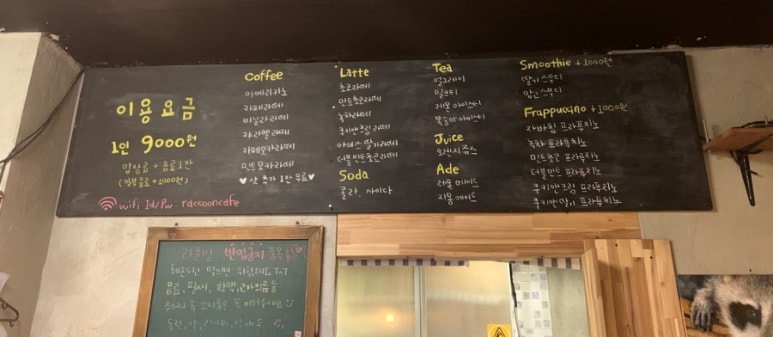 이용요금
1인 9000원
입장료 + 음료1잔
(일부음료 +1000원)
wifi Id/pw : raccooncafe
Coffee
아메리카노
카페라떼
바닐라라떼
카라멜라떼
카페모카라떼
민트모카라떼
♥ 샷 추가 1잔 무료 ♥
Latte
초코라떼
민트초코라떼
녹차라떼
쿠키앤크림라떼
아이스 딸기라떼
더블민트초코라떼
Soda
콜라, 사이다
Tea
얼그레이
밀크티
레몬 아이스티
복숭아 아이스티
Juice
오렌지 쥬스
Ade
레몬 에이드
자몽 에이드
Smoothie +1000원
딸기 스무디
망고 스무디
Frappuccino +1000원
자바칩 프라푸치노
녹차 프라푸치노
민트초코 프라푸치노
더블민트 프라푸치노
쿠키앤크림 프라푸치노
쿠키앤딸기 프라푸치노
라쿤이 반입금지
먹으면 위험해요 TnT
음료, 껌, 빵